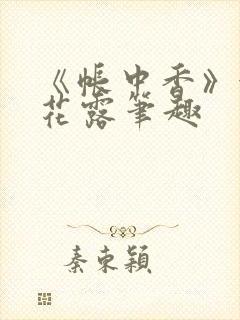 《帐中香》
花露笔趣
秦束颖